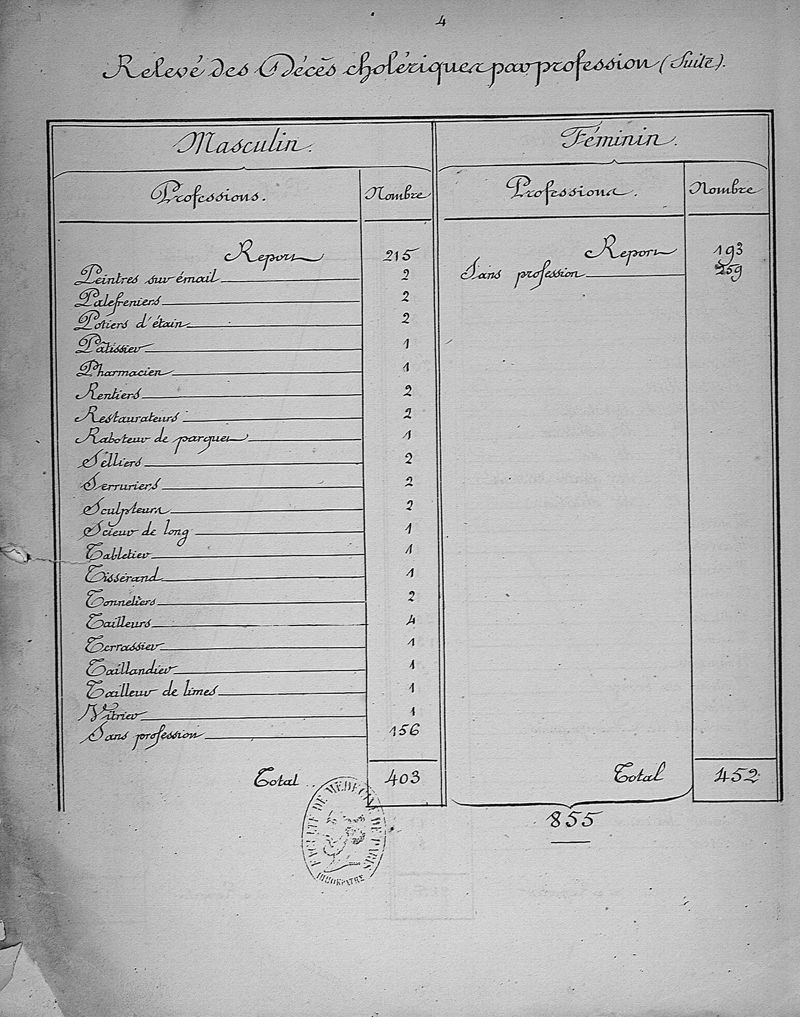 4
Relevé des Décès cholériques par profession (Suite).
Masculin.
Professions. Nombre
Report 215
Peintres sur émail 2
Palefreniers 2
Potiers d'étain 2
Pâtissier 1
Pharmacien 1
Rentiers 2
Restaurateurs 2
Raboteur de parquet 1
Selliers 2
Serruriers 2
Sculpteurs 2
Scieur de long 1
Tabletier 1
Tissérand 1
Tonneliers 2
Tailleurs 4
Terrassier 1
Taillandier 1
Tailleur de limes 1
Vitrier 1
Sans profession 156
Total 403
Féminin.
Professions. Nombre
Report 193
Sans profession 259
Total 452
855
FACULTÉ DE MÉDECINE DE PARIS
HIPPOKRATES